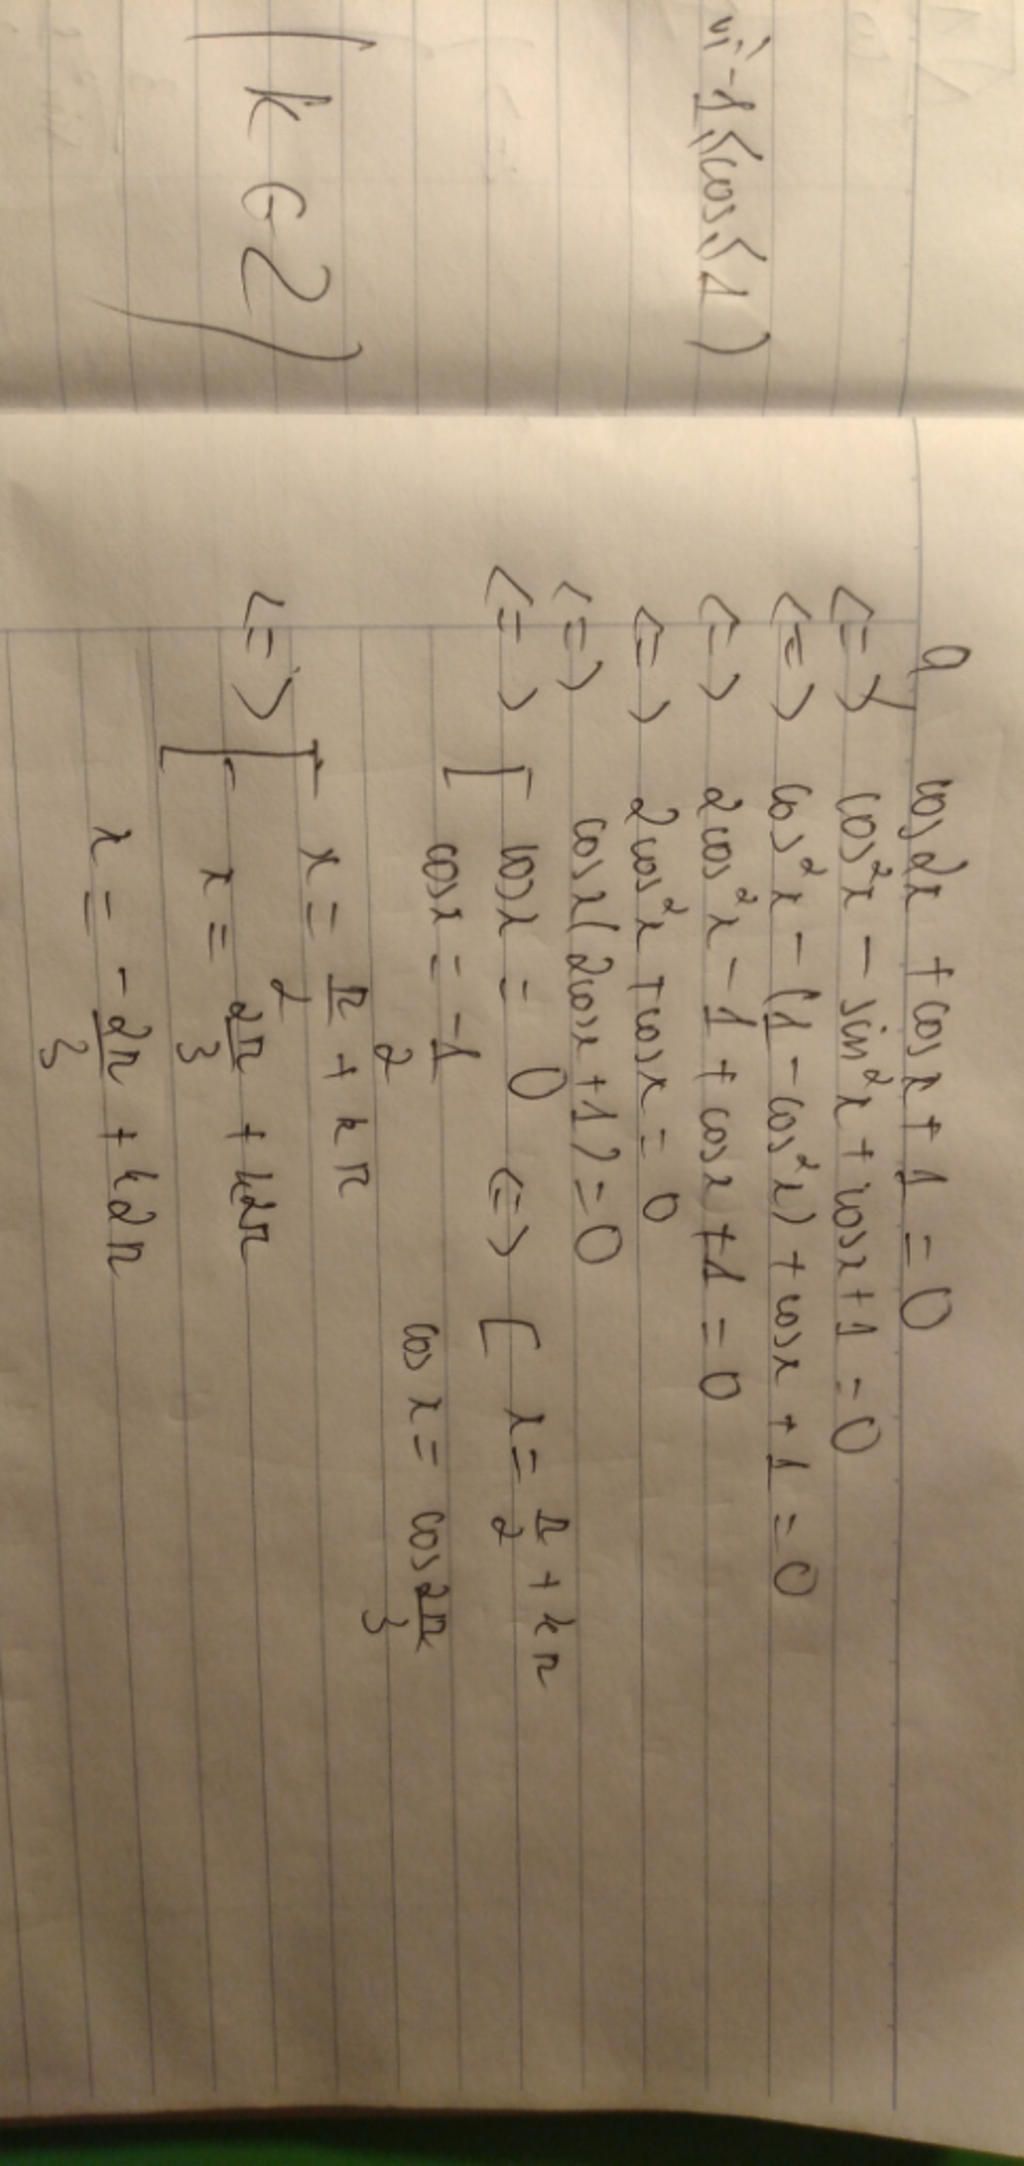 vì -1 ≤ cos ≤ 1 )
( k ∈ Z )
9 cos2x + cosx + 1 = 0
<=> cos²x - sin²x + cosx + 1 = 0
<=> cos²x - (1 - cos²x) + cosx + 1 = 0
<=> 2cos²x - 1 + cosx + 1 = 0
<=> 2cos²x + cosx = 0
<=> cosx(2cosx + 1) = 0
<=> [ cosx = 0 <=> [ x = π/2 + kπ
cosx = -1/2 cos x = cos 2π/3
<=> [ x = π/2 + kπ
x = 2π/3 + k2π
x = -2π/3 + k2π